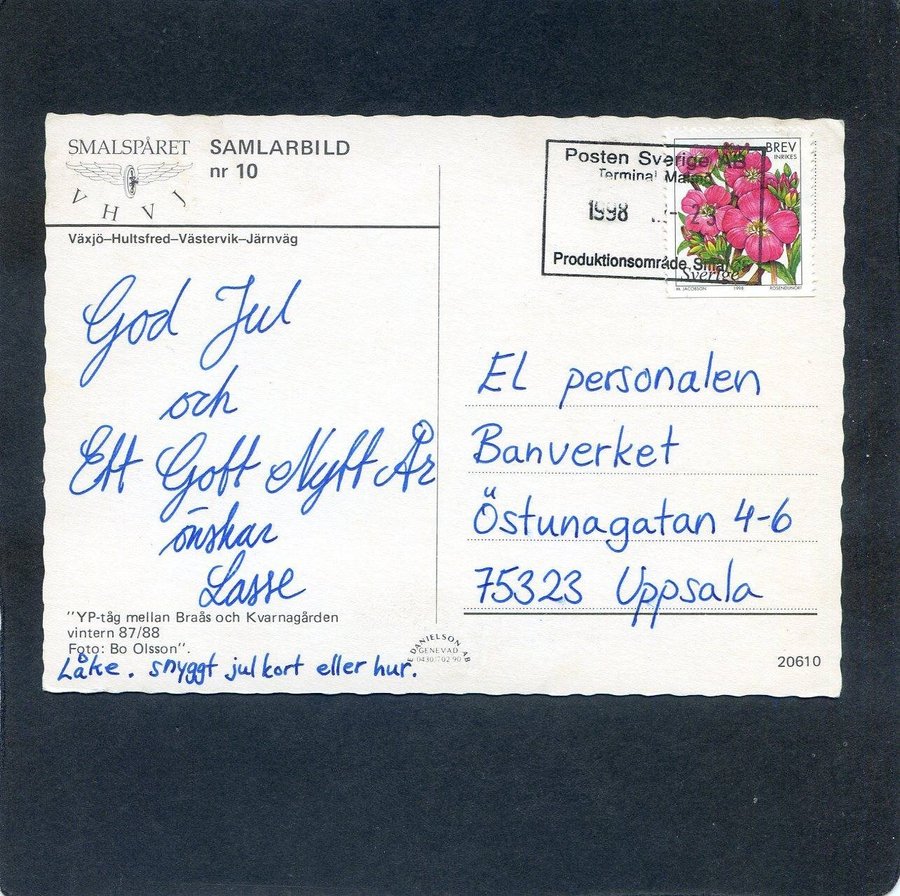 SMALSPÅRET
SAMLARBILD
nr 10
V H V J
Växjö–Hultsfred–Västervik–Järnväg
God Jul
och
Ett Gott Nytt År
önskar
Lasse
"YP-tåg mellan Braås och Kvarnagården
vintern 87/88
Foto: Bo Olsson".
Låke. snyggt julkort eller hur.
DANIELSON AB
GENEVAD
0430/702 90
Posten Sverige AB
Terminal Malmö
1998
Produktionsområde
BREV
INRIKES
Sverige
M. JACOBSON 1998 ROSENDUNORT
El personalen
Banverket
Östunagatan 4-6
75323 Uppsala
20610